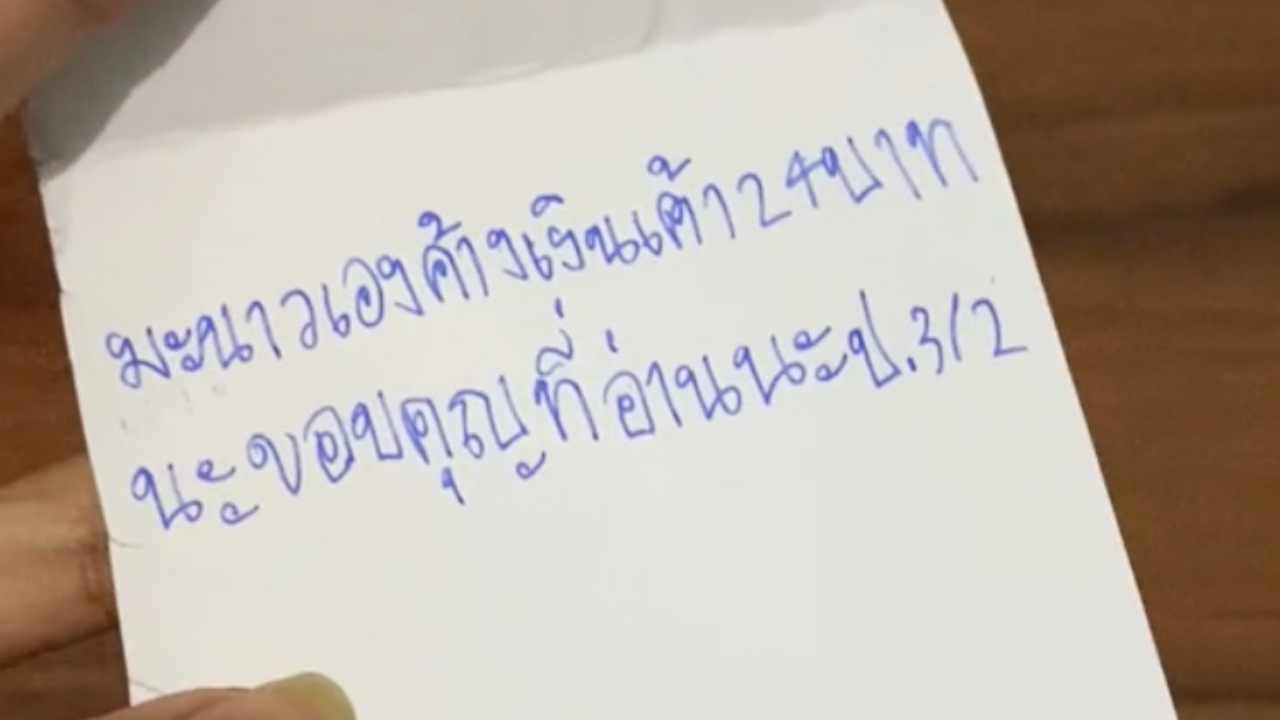 มะนาวเองค้างเงินเค้า24บาท
นะขอบคุญที่อ่านนะป.3/2